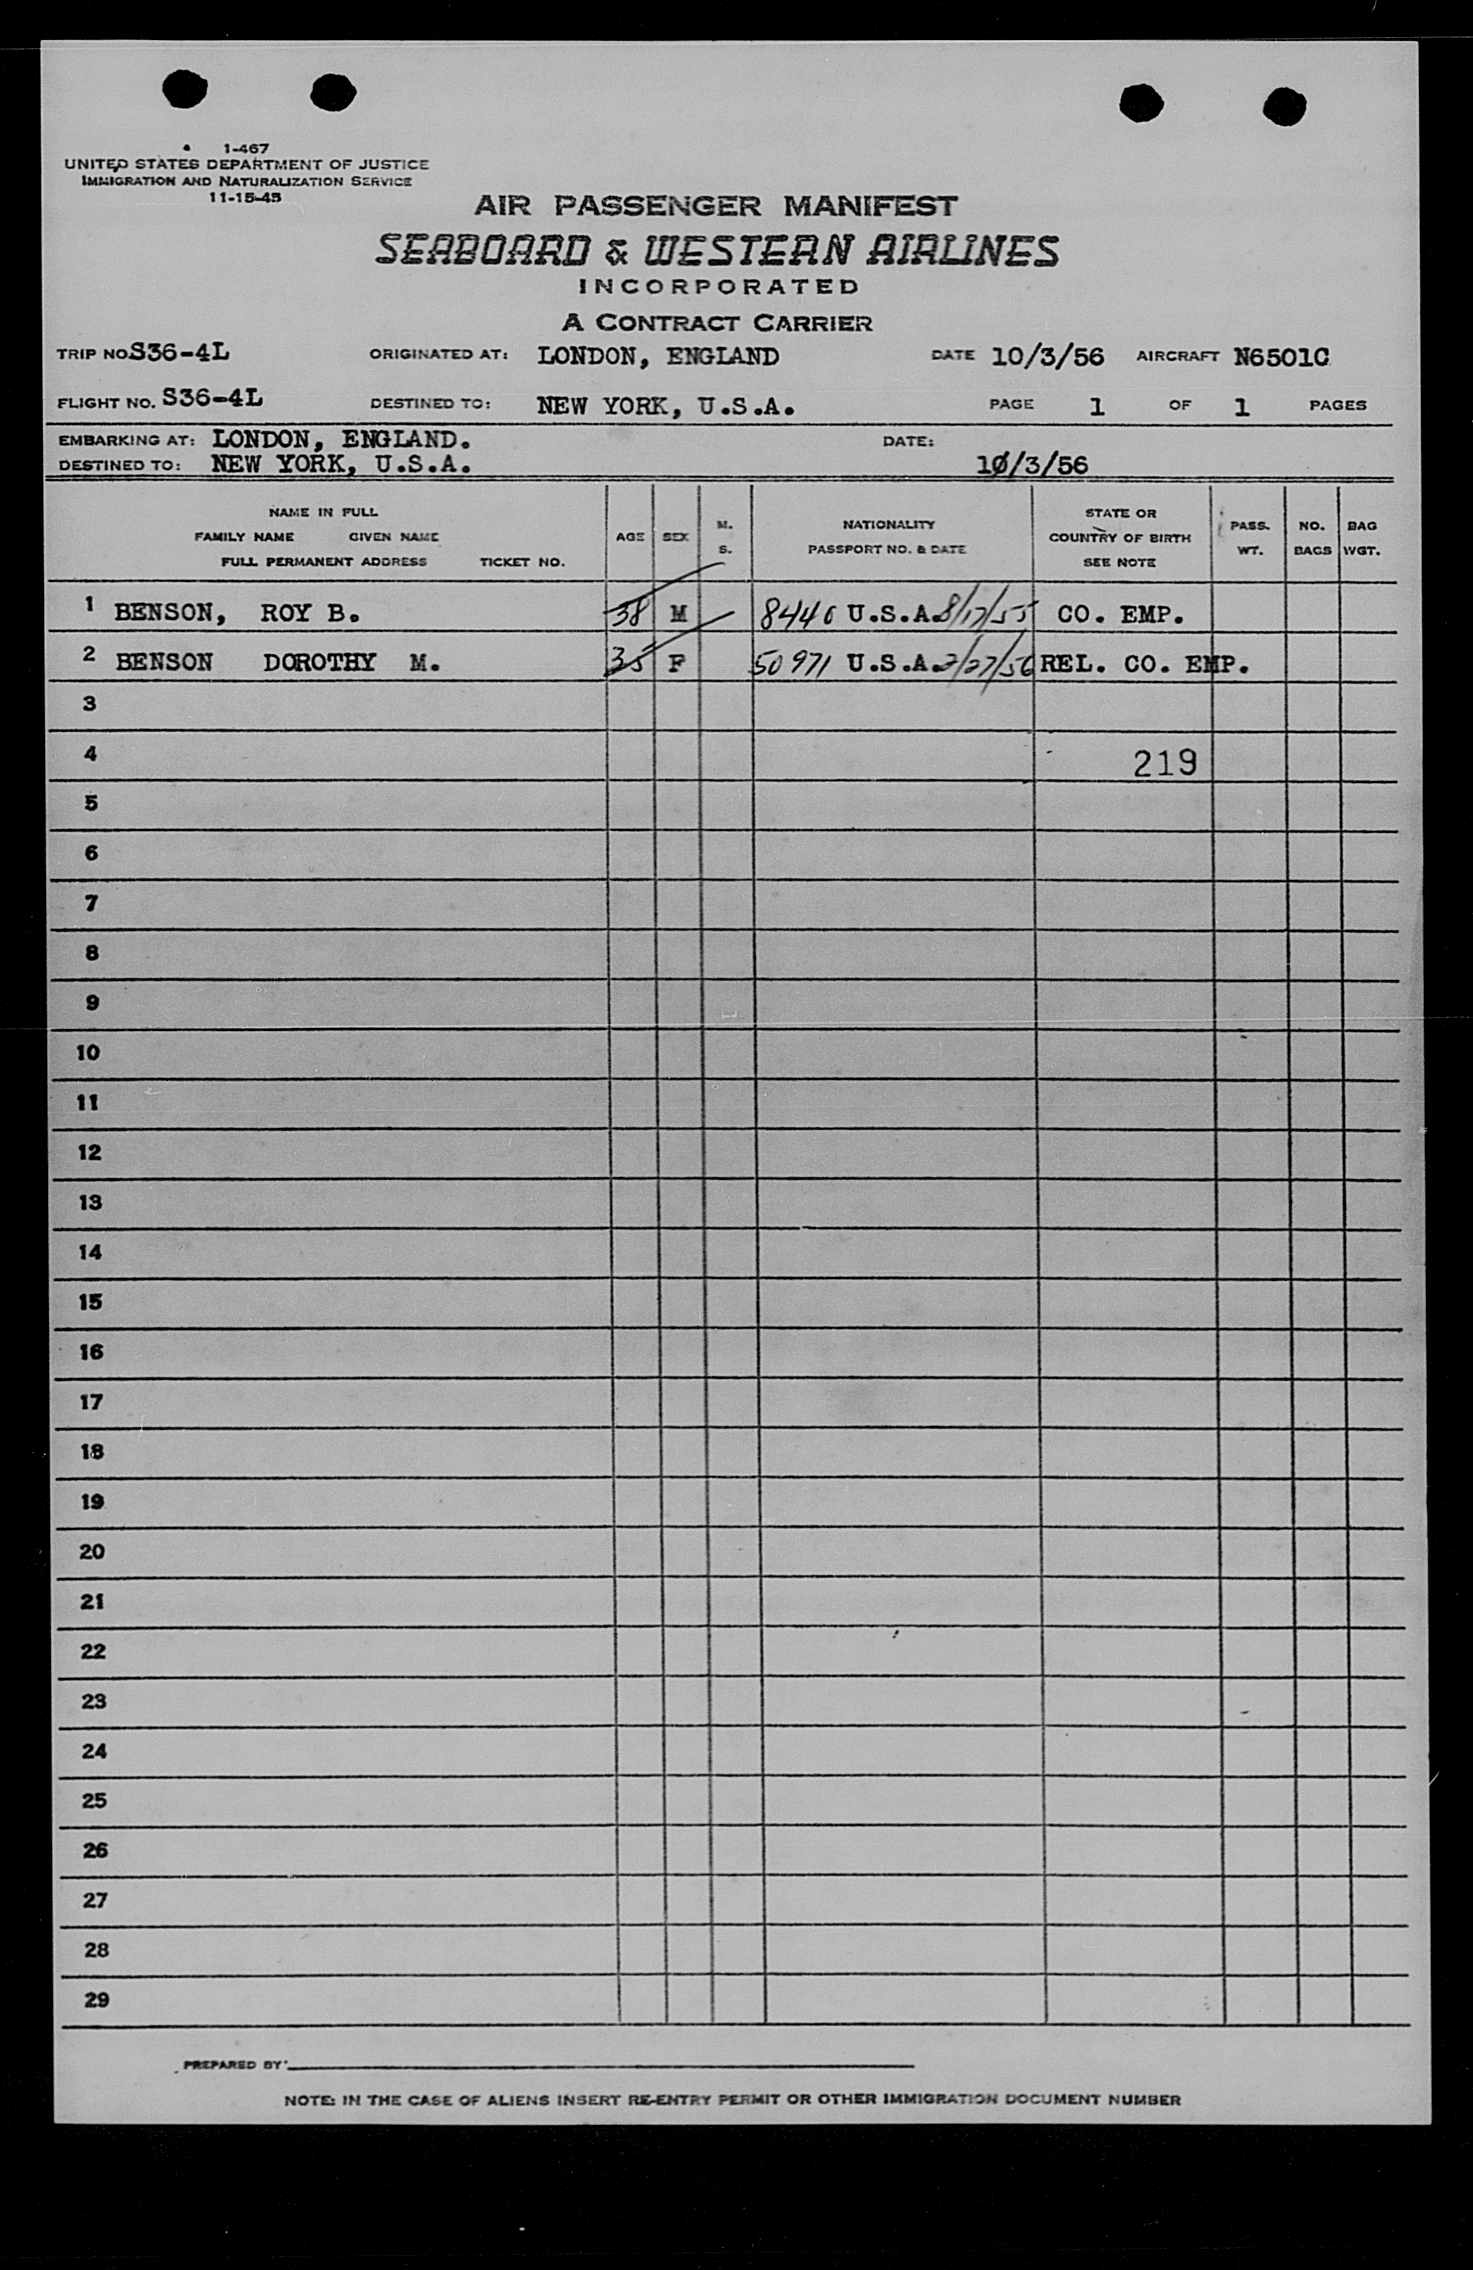 1-467
UNITED STATES DEPARTMENT OF JUSTICE
IMMIGRATION AND NATURALIZATION SERVICE
11-15-45
AIR PASSENGER MANIFEST
SEABOARD & WESTERN AIRLINES
INCORPORATED
A CONTRACT CARRIER
TRIP NO. S36-4L ORIGINATED AT: LONDON, ENGLAND DATE 10/3/56 AIRCRAFT N6501C
FLIGHT NO. S36-4L DESTINED TO: NEW YORK, U.S.A. PAGE 1 OF 1 PAGES
EMBARKING AT: LONDON, ENGLAND. DATE:
DESTINED TO: NEW YORK, U.S.A. 10/3/56
NAME IN FULL STATE OR
FAMILY NAME GIVEN NAME AGE SEX M. NATIONALITY COUNTRY OF BIRTH PASS. NO. BAG
FULL PERMANENT ADDRESS TICKET NO. S. PASSPORT NO. & DATE SEE NOTE WT. BAGS WGT.
1 BENSON, ROY B. 38 M 8446 U.S.A. 8/17/55 CO. EMP.
2 BENSON DOROTHY M. 35 F 50971 U.S.A. 2/27/56 REL. CO. EMP.
3
4 219
5
6
7
8
9
10
11
12
13
14
15
16
17
18
19
20
21
22
23
24
25
26
27
28
29
PREPARED BY
NOTE: IN THE CASE OF ALIENS INSERT RE-ENTRY PERMIT OR OTHER IMMIGRATION DOCUMENT NUMBER